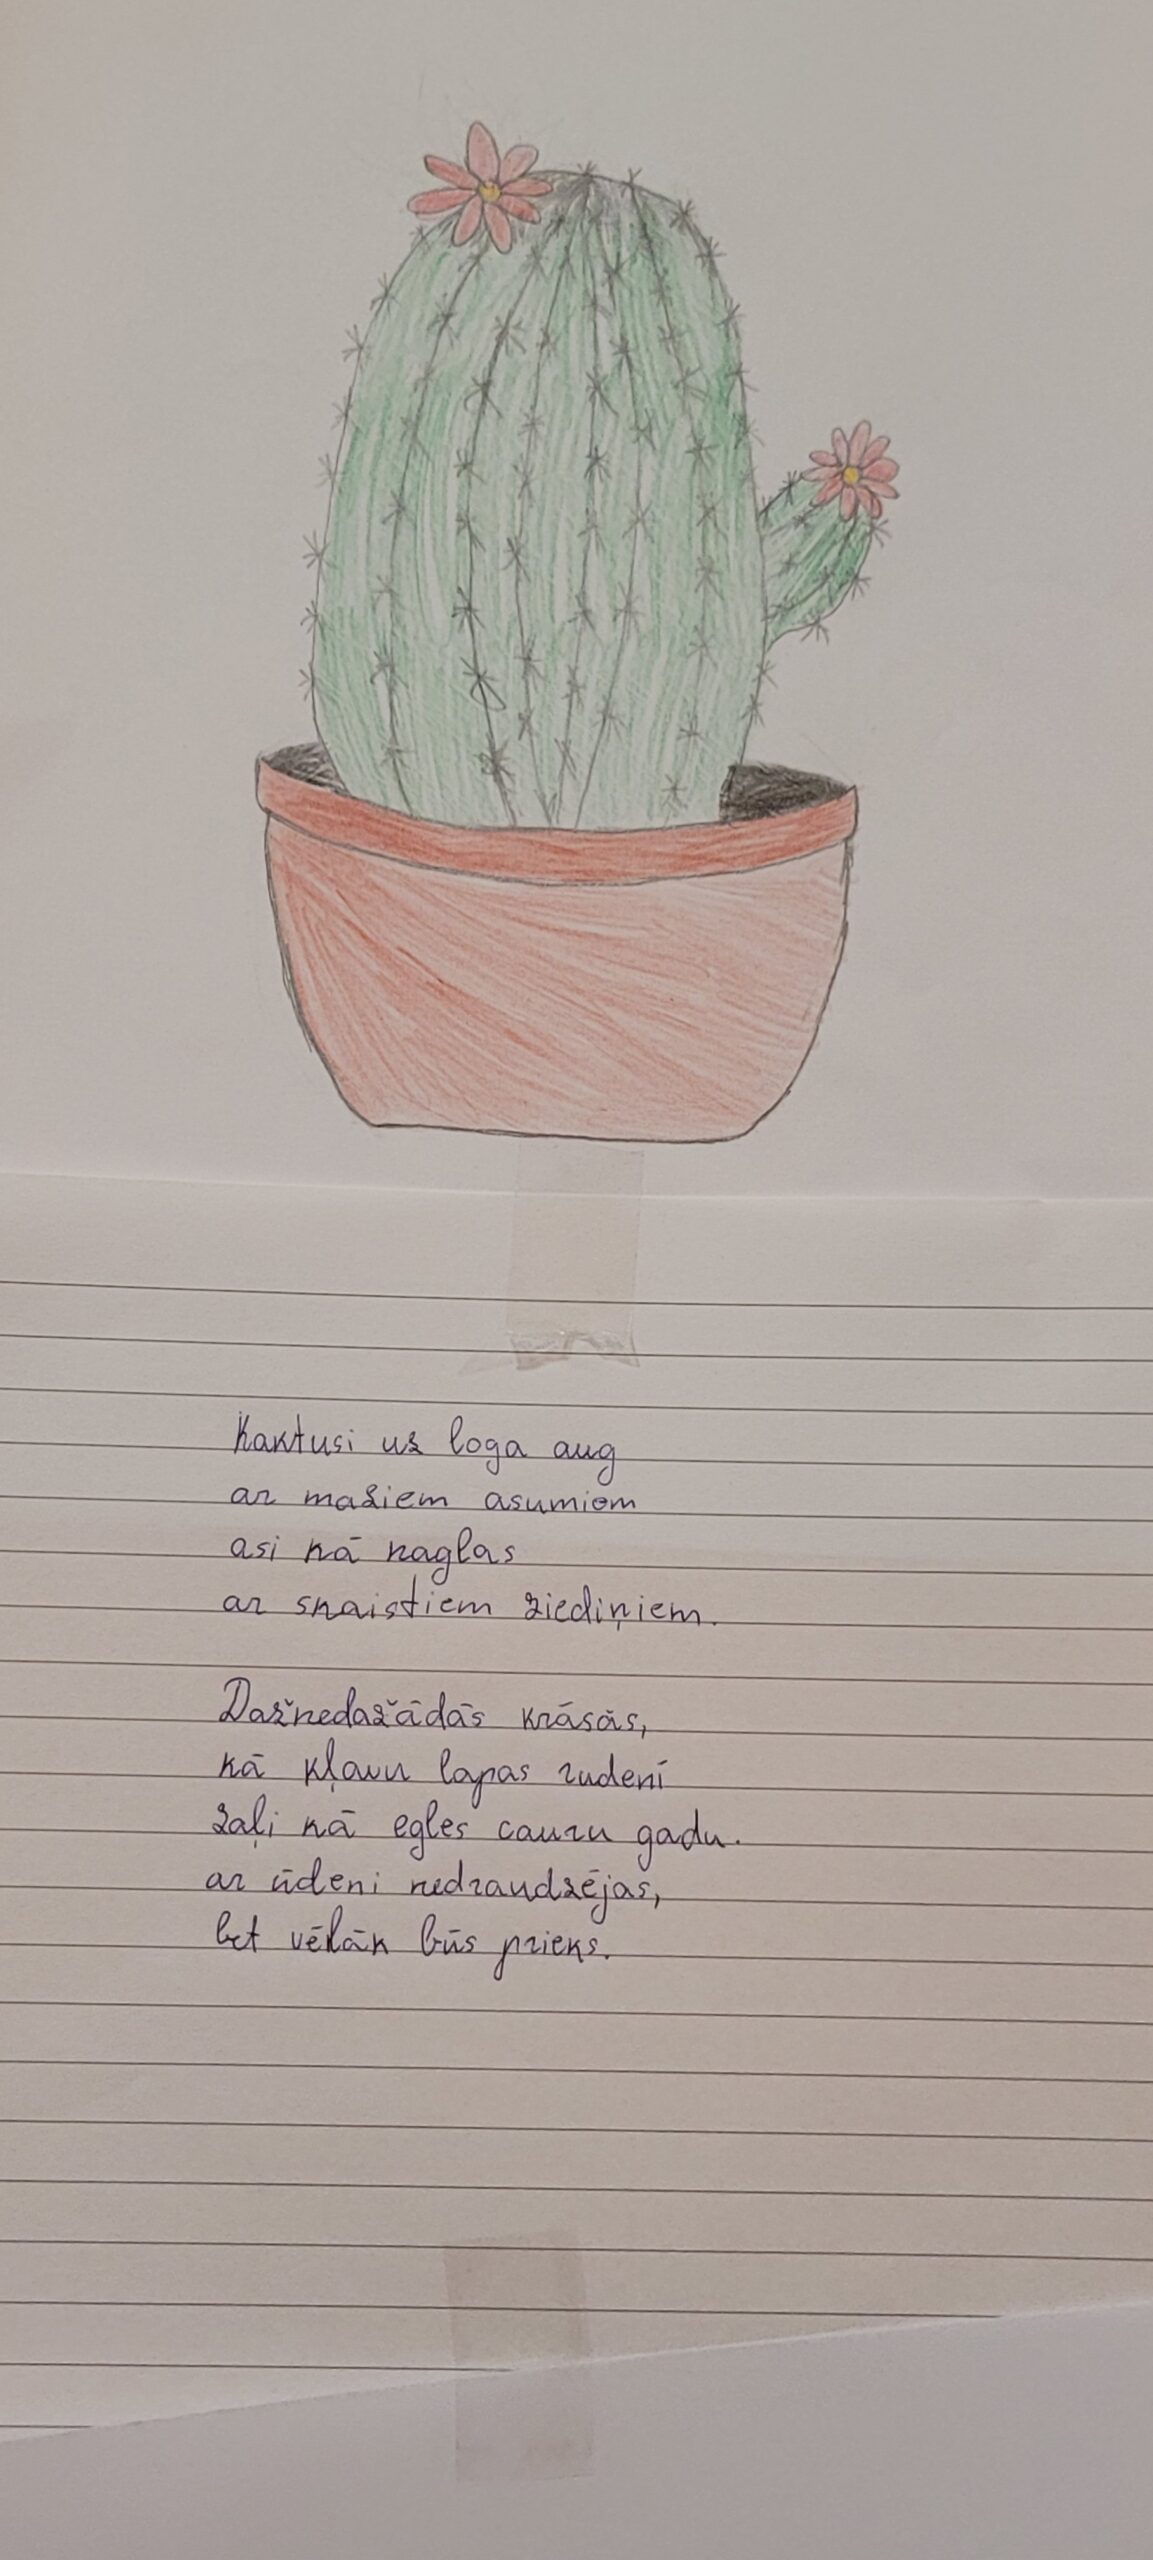 Kaktusi uz loga aug
ar maziem asumiem
asi kā naglas
ar skaistiem ziediņiem.
Dažnedažādās krāsās,
kā kļavu lapas rudenī
zaļi kā egles cauru gadu.
ar ūdeni nedraudzējas,
bet vēlāk būs prieks.